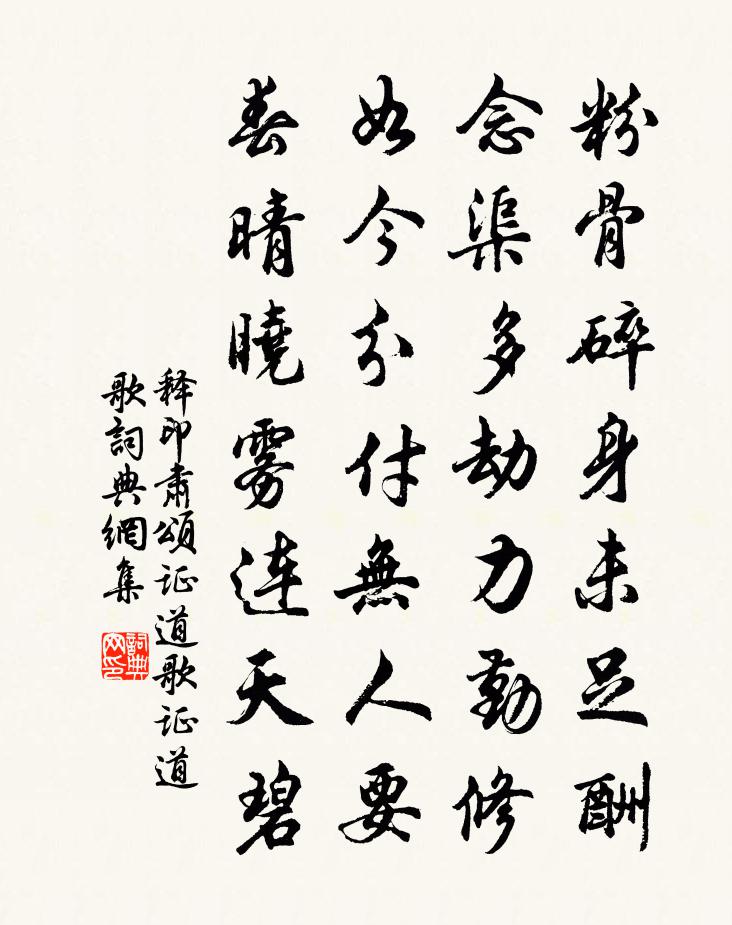 粉骨碎身未足酬
念渠多劫力勤修
如今分付無人要
春晴曉雾连天碧
释印肃頌证道歌证道
歌詞典網集
詞典网印